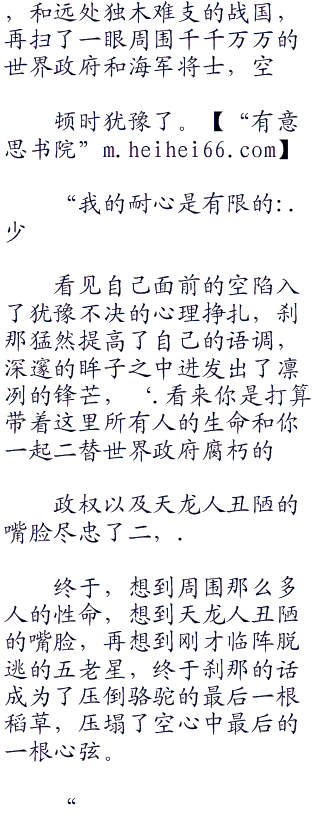 ，和远处独木难支的战国，
再扫了一眼周围千千万万的
世界政府和海军将士，空
顿时犹豫了。【“有意
思书院”m.heihei66.com】
“我的耐心是有限的:.
少
看见自己面前的空陷入
了犹豫不决的心理挣扎，刹
那猛然提高了自己的语调，
深邃的眸子之中迸发出了凛
冽的锋芒，‘.看来你是打算
带着这里所有人的生命和你
一起二替世界政府腐朽的
政权以及天龙人丑陋的
嘴脸尽忠了二，.
终于，想到周围那么多
人的性命，想到天龙人丑陋
的嘴脸，再想到刚才临阵脱
逃的五老星，终于刹那的话
成为了压倒骆驼的最后一根
稻草，压塌了空心中最后的
一根心弦。
“